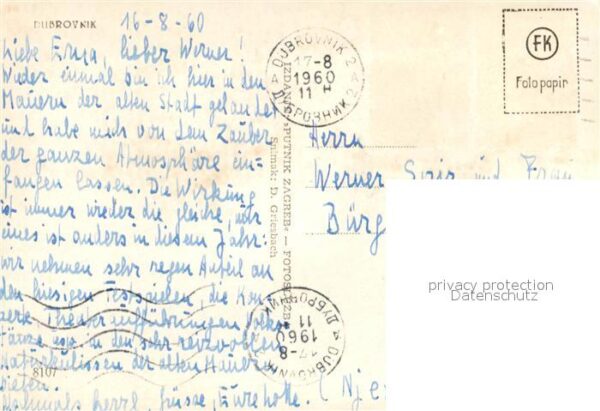 DUBROVNIK
16-8-60
Liebe Erna, lieber Werner!
Wieder einmal bin ich hier in den
Mauern der alten Stadt gelandet
und habe mich von dem Zauber
der ganzen Atmosphäre ein-
fangen lassen. Die Wirkung
ist immer wieder die gleiche, nur
eines ist anders in diesem Jahr:
wir nehmen sehr regen Anteil an
den hiesigen Festspielen, die Kon-
zerte, Theateraufführungen, Volks-
tänze in den sehr reizvollen
Naturkulissen der alten Mauern
bieten.
Nochmals herzl. Grüsse, Eure
8107
IZDANJE »PUTNIK ZAGREB« — FOTOSLUŽBA
Snimak: D. Griesbach
DUBROVNIK 2
17-8
1960
11
ДУБРОВНИК 2
FK
Fotopapir
Herrn
Werner und Frau
Bürg
privacy protection
Datenschutz
DUBROVNIK
17-8
1960
11
ДУБРОВНИК